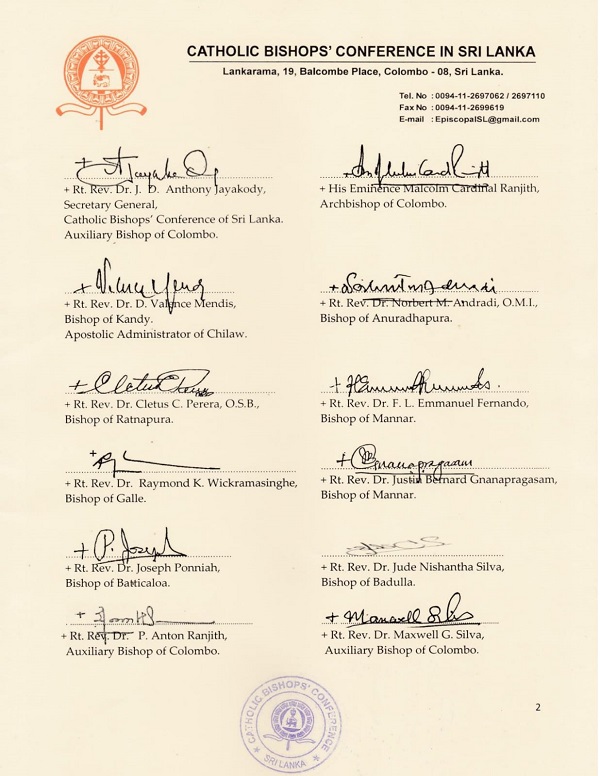 CATHOLIC BISHOPS' CONFERENCE IN SRI LANKA
Lankarama, 19, Balcombe Place, Colombo - 08, Sri Lanka.
Tel. No : 0094-11-2697062 / 2697110
Fax No : 0094-11-2699619
E-mail : EpiscopalSL@gmail.com
+ Rt. Rev. Dr. J. D. Anthony Jayakody,
Secretary General,
Catholic Bishops' Conference of Sri Lanka.
Auxiliary Bishop of Colombo.
+ His Eminence Malcolm Cardinal Ranjith,
Archbishop of Colombo.
+ Rt. Rev. Dr. D. Valence Mendis,
Bishop of Kandy.
Apostolic Administrator of Chilaw.
+ Rt. Rev. Dr. Norbert M. Andradi, O.M.I.,
Bishop of Anuradhapura.
+ Rt. Rev. Dr. Cletus C. Perera, O.S.B.,
Bishop of Ratnapura.
+ Rt. Rev. Dr. F. L. Emmanuel Fernando,
Bishop of Mannar.
+ Rt. Rev. Dr. Raymond K. Wickramasinghe,
Bishop of Galle.
+ Gnanapragasam
+ Rt. Rev. Dr. Justin Bernard Gnanapragasam,
Bishop of Mannar.
+ P. Joseph
+ Rt. Rev. Dr. Joseph Ponniah,
Bishop of Batticaloa.
+ Rt. Rev. Dr. Jude Nishantha Silva,
Bishop of Badulla.
+ Rt. Rev. Dr. P. Anton Ranjith,
Auxiliary Bishop of Colombo.
+ Maxwell Silva
+ Rt. Rev. Dr. Maxwell G. Silva,
Auxiliary Bishop of Colombo.
CATHOLIC BISHOPS' CONFERENCE
SRI LANKA
2